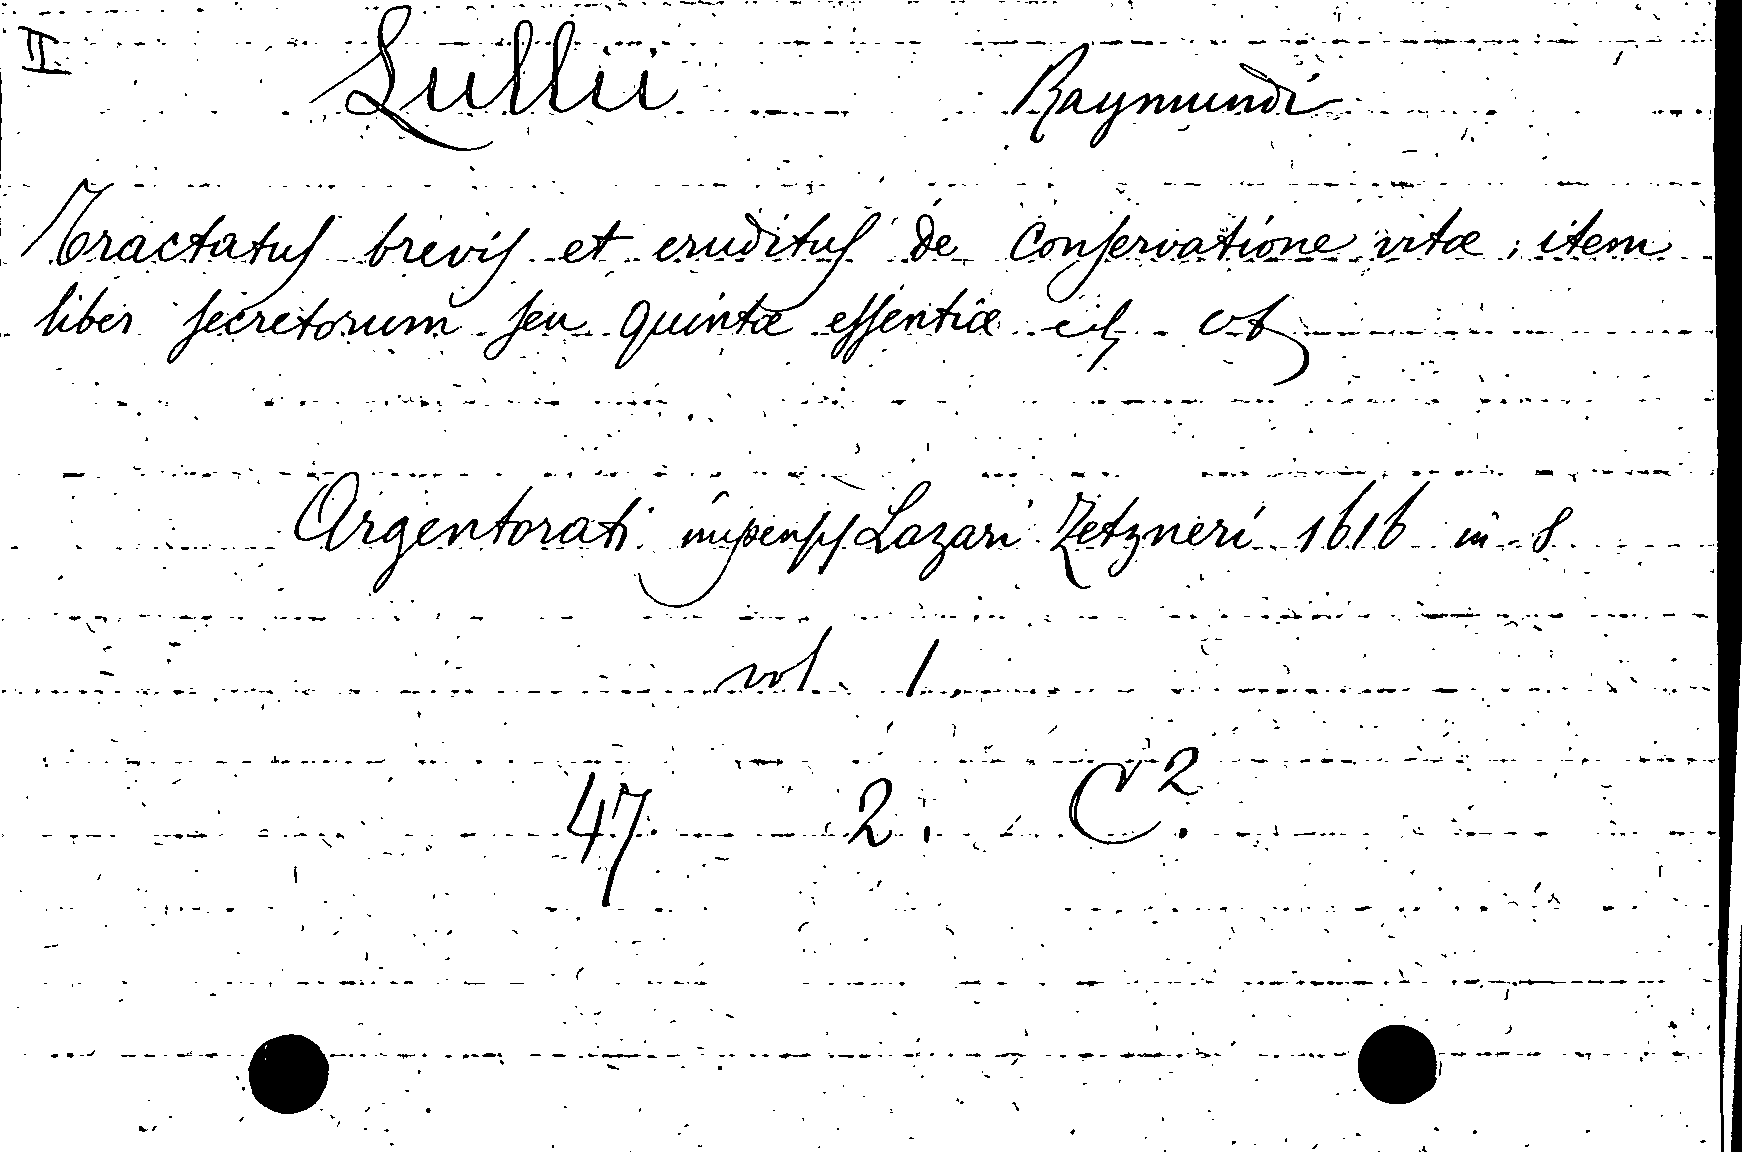 II Lullii Raymundi
Tractatus brevis et eruditus de Conservatione vitæ; item
liber secretorum seu quintæ essentiæ
Argentorati impensis Lazari Zetzneri 1616 in 8
vol. 1.
47. 2. C².